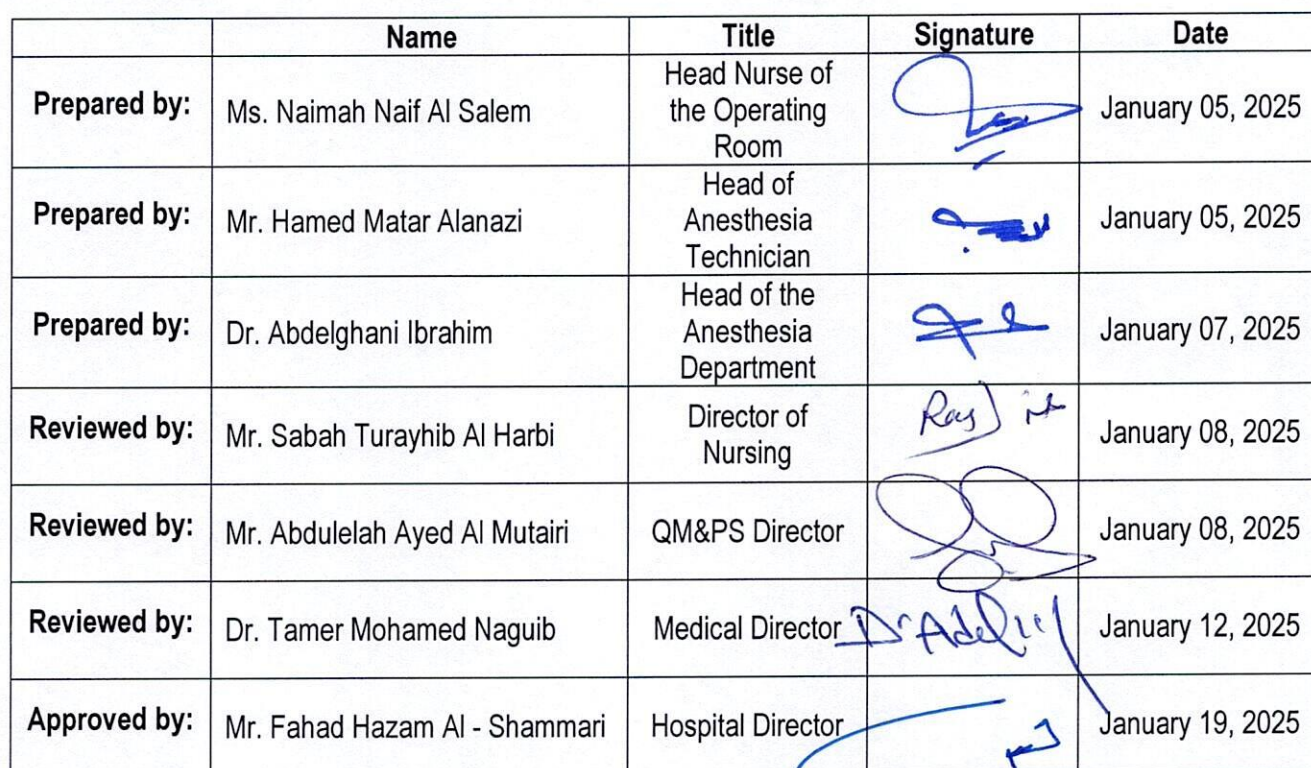 Name Title Signature Date
Prepared by: Ms. Naimah Naif Al Salem Head Nurse of the Operating Room January 05, 2025
Prepared by: Mr. Hamed Matar Alanazi Head of Anesthesia Technician January 05, 2025
Prepared by: Dr. Abdelghani Ibrahim Head of the Anesthesia Department January 07, 2025
Reviewed by: Mr. Sabah Turayhib Al Harbi Director of Nursing January 08, 2025
Reviewed by: Mr. Abdulelah Ayed Al Mutairi QM&PS Director January 08, 2025
Reviewed by: Dr. Tamer Mohamed Naguib Medical Director Dr Adel January 12, 2025
Approved by: Mr. Fahad Hazam Al - Shammari Hospital Director January 19, 2025